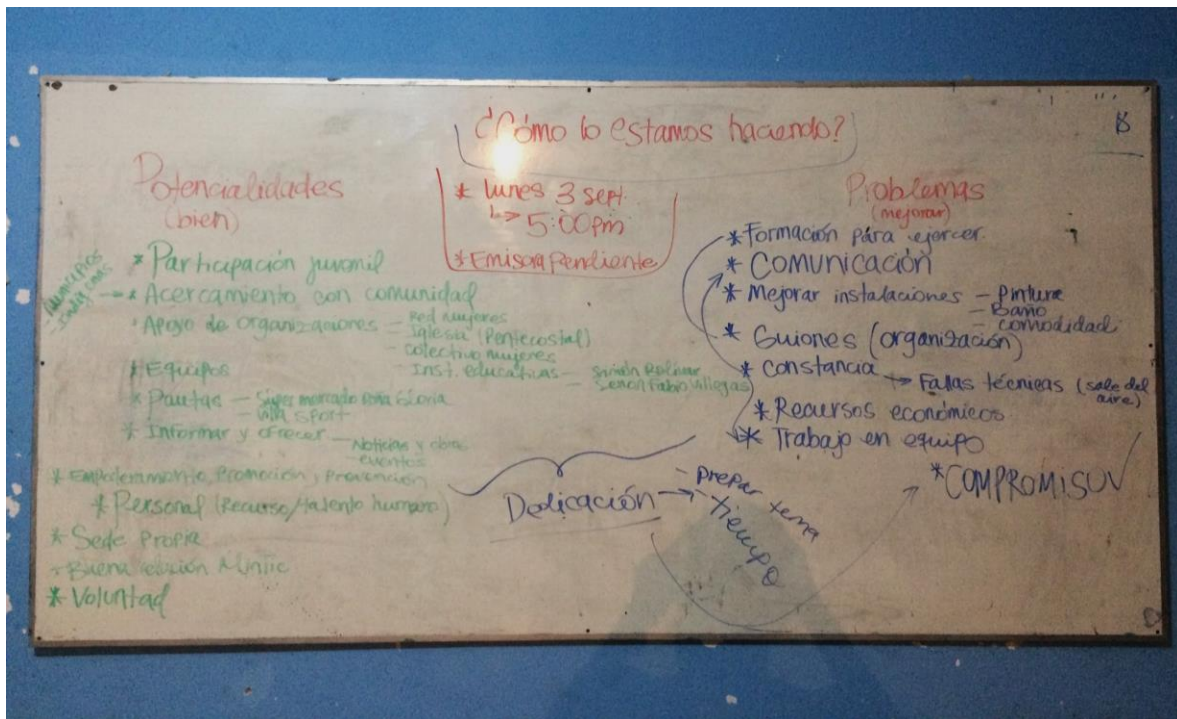 ¿Cómo lo estamos haciendo?
Potencialidades
(bien)
* Lunes 3 sept.
↳ 5:00 pm
* Emisora Pendiente
Problemas
(mejorar)
Indígenas
* Participación juvenil
→ * Acercamiento con comunidad
* Apoyo de organizaciones - Red mujeres
- Iglesia (Pentecostal)
- Colectivo mujeres
- Inst. educativas - Simón Bolívar
- Senón Fabio Villegas
* Equipos
* Pautas - Super mercado Doña Gloria
- Villa Sport
* Informar y ofrecer - Noticias y
- eventos
* Empoderamiento, Promoción y Prevención
* Personal (Recurso/talento humano)
* Sede Propia
- Buena relación Mintic
* Voluntad
* Formación para ejercer
* COMUNICACIÓN
* Mejorar instalaciones - Pintura
- Baño
- comodidad
* Guiones (organización)
* Constancia
→ Fallas técnicas (sale del aire)
* Recursos económicos
* Trabajo en equipo
* COMPROMISO
Dedicación → - prepar tema
- tiempo